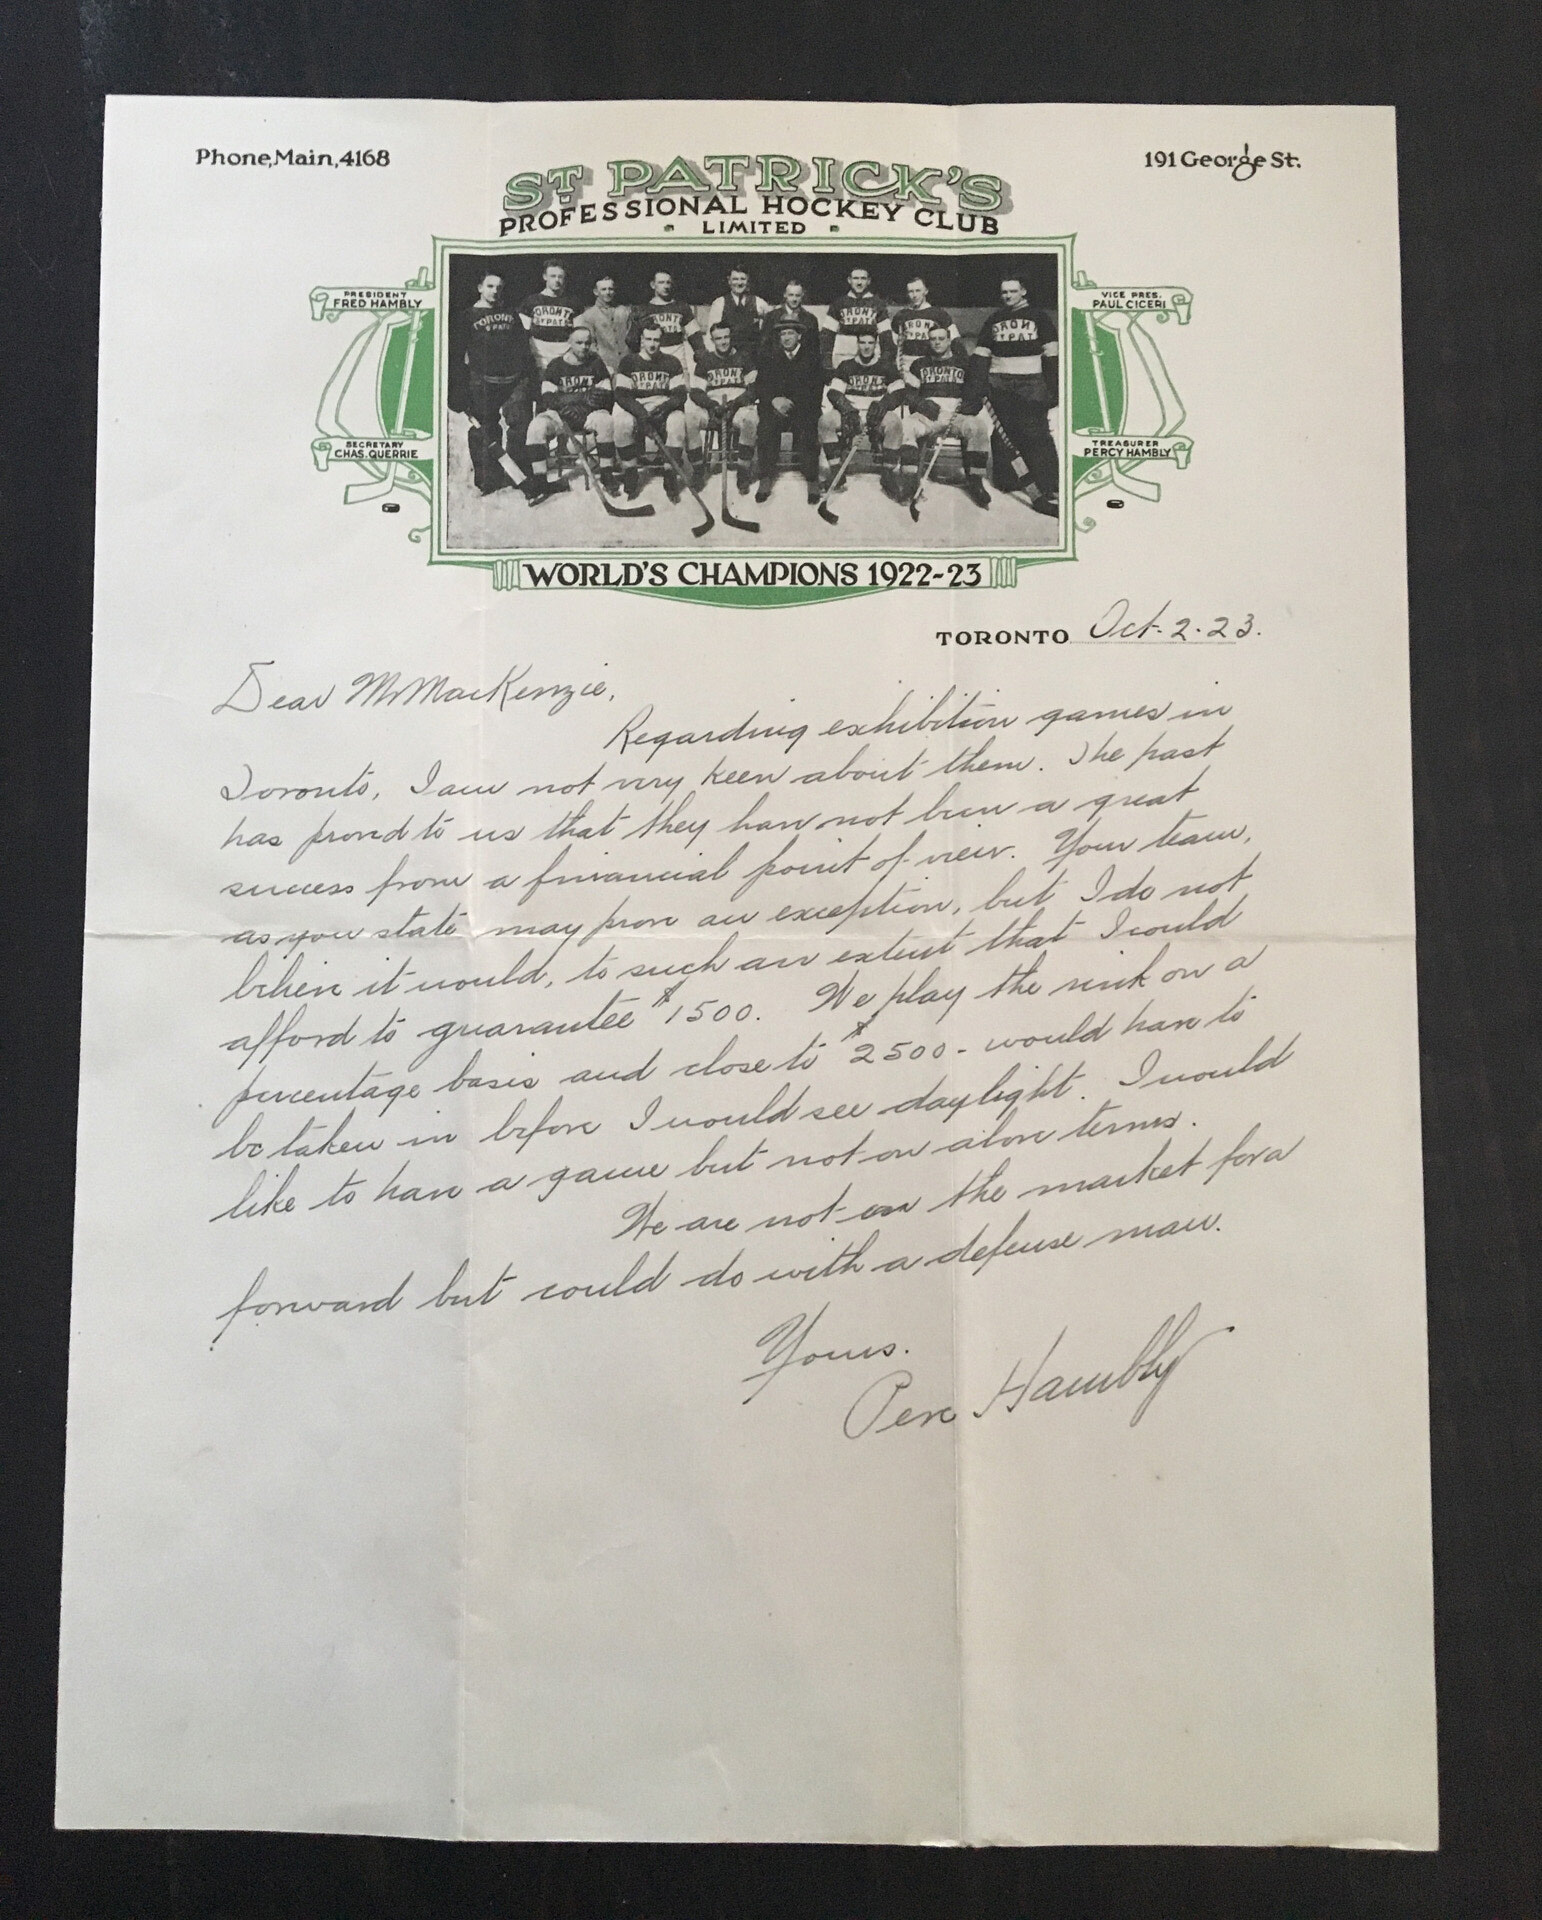 Phone, Main, 4168
191 George St.
ST PATRICK'S
PROFESSIONAL HOCKEY CLUB
LIMITED
PRESIDENT
FRED HAMBLY
VICE PRES.
PAUL CICERI
SECRETARY
CHAS. QUERRIE
TREASURER
PERCY HAMBLY
TORONTO
ST PATS
WORLD'S CHAMPIONS 1922-23
TORONTO Oct. 2. 23.
Dear Mr MacKenzie,
Regarding exhibition games in
Toronto, I am not very keen about them. The past
has proved to us that they have not been a great
success from a financial point of view. Your team,
as you state may prove an exception, but I do not
believe it would, to such an extent that I could
afford to guarantee $1500. We play the rink on a
percentage basis and close to $2500 - would have to
be taken in before I would see daylight. I would
like to have a game but not on above terms.
We are not on the market for a
forward but could do with a defense man.
Yours.
Perc Hambly